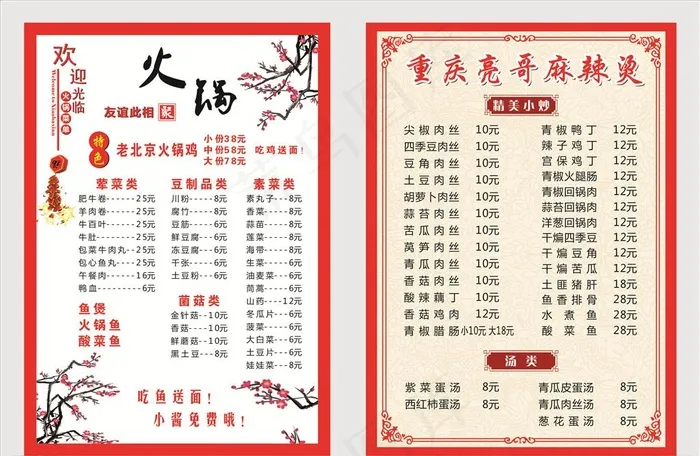 欢迎光临
Welcome to
火锅菜单
火锅
友谊此相聚
特色
老北京火锅鸡
小份38元
中份58元
大份78元
吃鸡送面!
荤菜类
肥牛卷-----25元
羊肉卷-----25元
牛百叶-----25元
牛肚-------25元
包菜牛肉丸--15元
包心鱼丸----15元
午餐肉-----16元
鸭血-------6元
鱼煲
火锅鱼
酸菜鱼
豆制品类
川粉----8元
腐竹----8元
豆筋----8元
鲜豆腐--8元
冻豆腐--8元
千张----6元
土豆粉--8元
菌菇类
金针菇--10元
香菇----10元
鲜蘑菇--10元
黑土豆---8元
素菜类
素丸子--8元
香菜----8元
蒜苗----8元
莲菜----8元
海带----8元
生菜----8元
油麦菜--8元
茼蒿----8元
山药---12元
冬瓜片--6元
菠菜----6元
大白菜--6元
土豆片--6元
娃娃菜--8元
吃鱼送面!
小酱免费哦!
重庆亮哥麻辣烫
精美小炒
尖椒肉丝 10元
四季豆肉丝 10元
豆角肉丝 10元
土豆肉丝 10元
胡萝卜肉丝 10元
蒜苔肉丝 10元
苦瓜肉丝 10元
莴笋肉丝 10元
青瓜肉丝 10元
香菇肉丝 10元
酸辣藕丁 10元
香菇鸡肉 12元
青椒腊肠 小10元 大18元
青椒鸭丁 12元
辣子鸡丁 12元
宫保鸡丁 12元
青椒火腿肠 12元
青椒回锅肉 12元
蒜苔回锅肉 12元
洋葱回锅肉 12元
干煸四季豆 12元
干煸豆角 12元
干煸苦瓜 12元
土匪猪肝 18元
鱼香排骨 28元
水煮鱼 28元
酸菜鱼 28元
汤类
紫菜蛋汤 8元
西红柿蛋汤 8元
青瓜皮蛋汤 8元
青瓜肉丝汤 8元
葱花蛋汤 8元